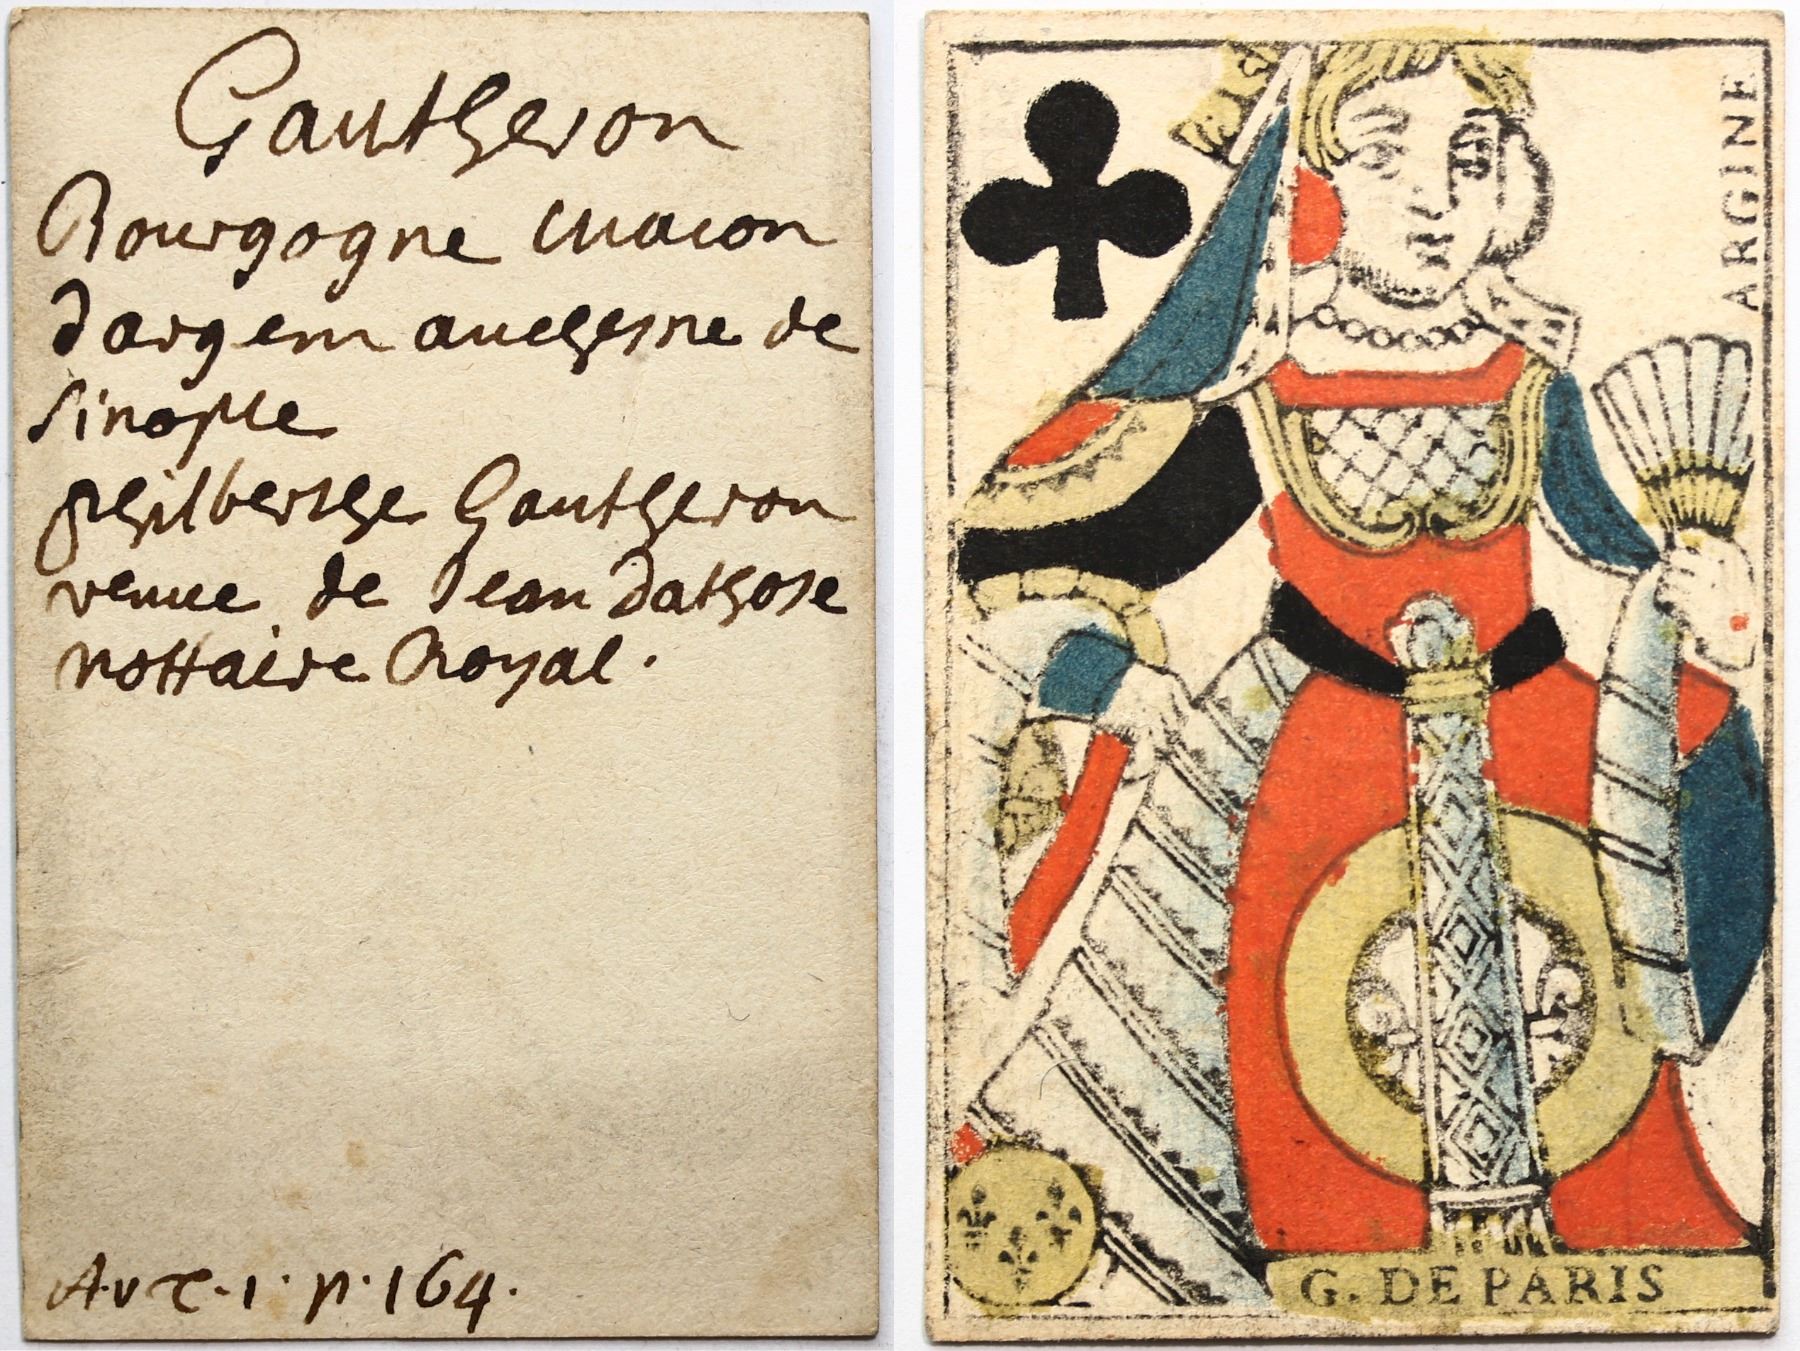 Gautheron
Bourgogne macon
dargem auchesne de
sinople
philberthe Gautheron
venue de Jean dathose
nottaire Royal.
A.v x.1. p.164.
ARGINE
G. DE PARIS